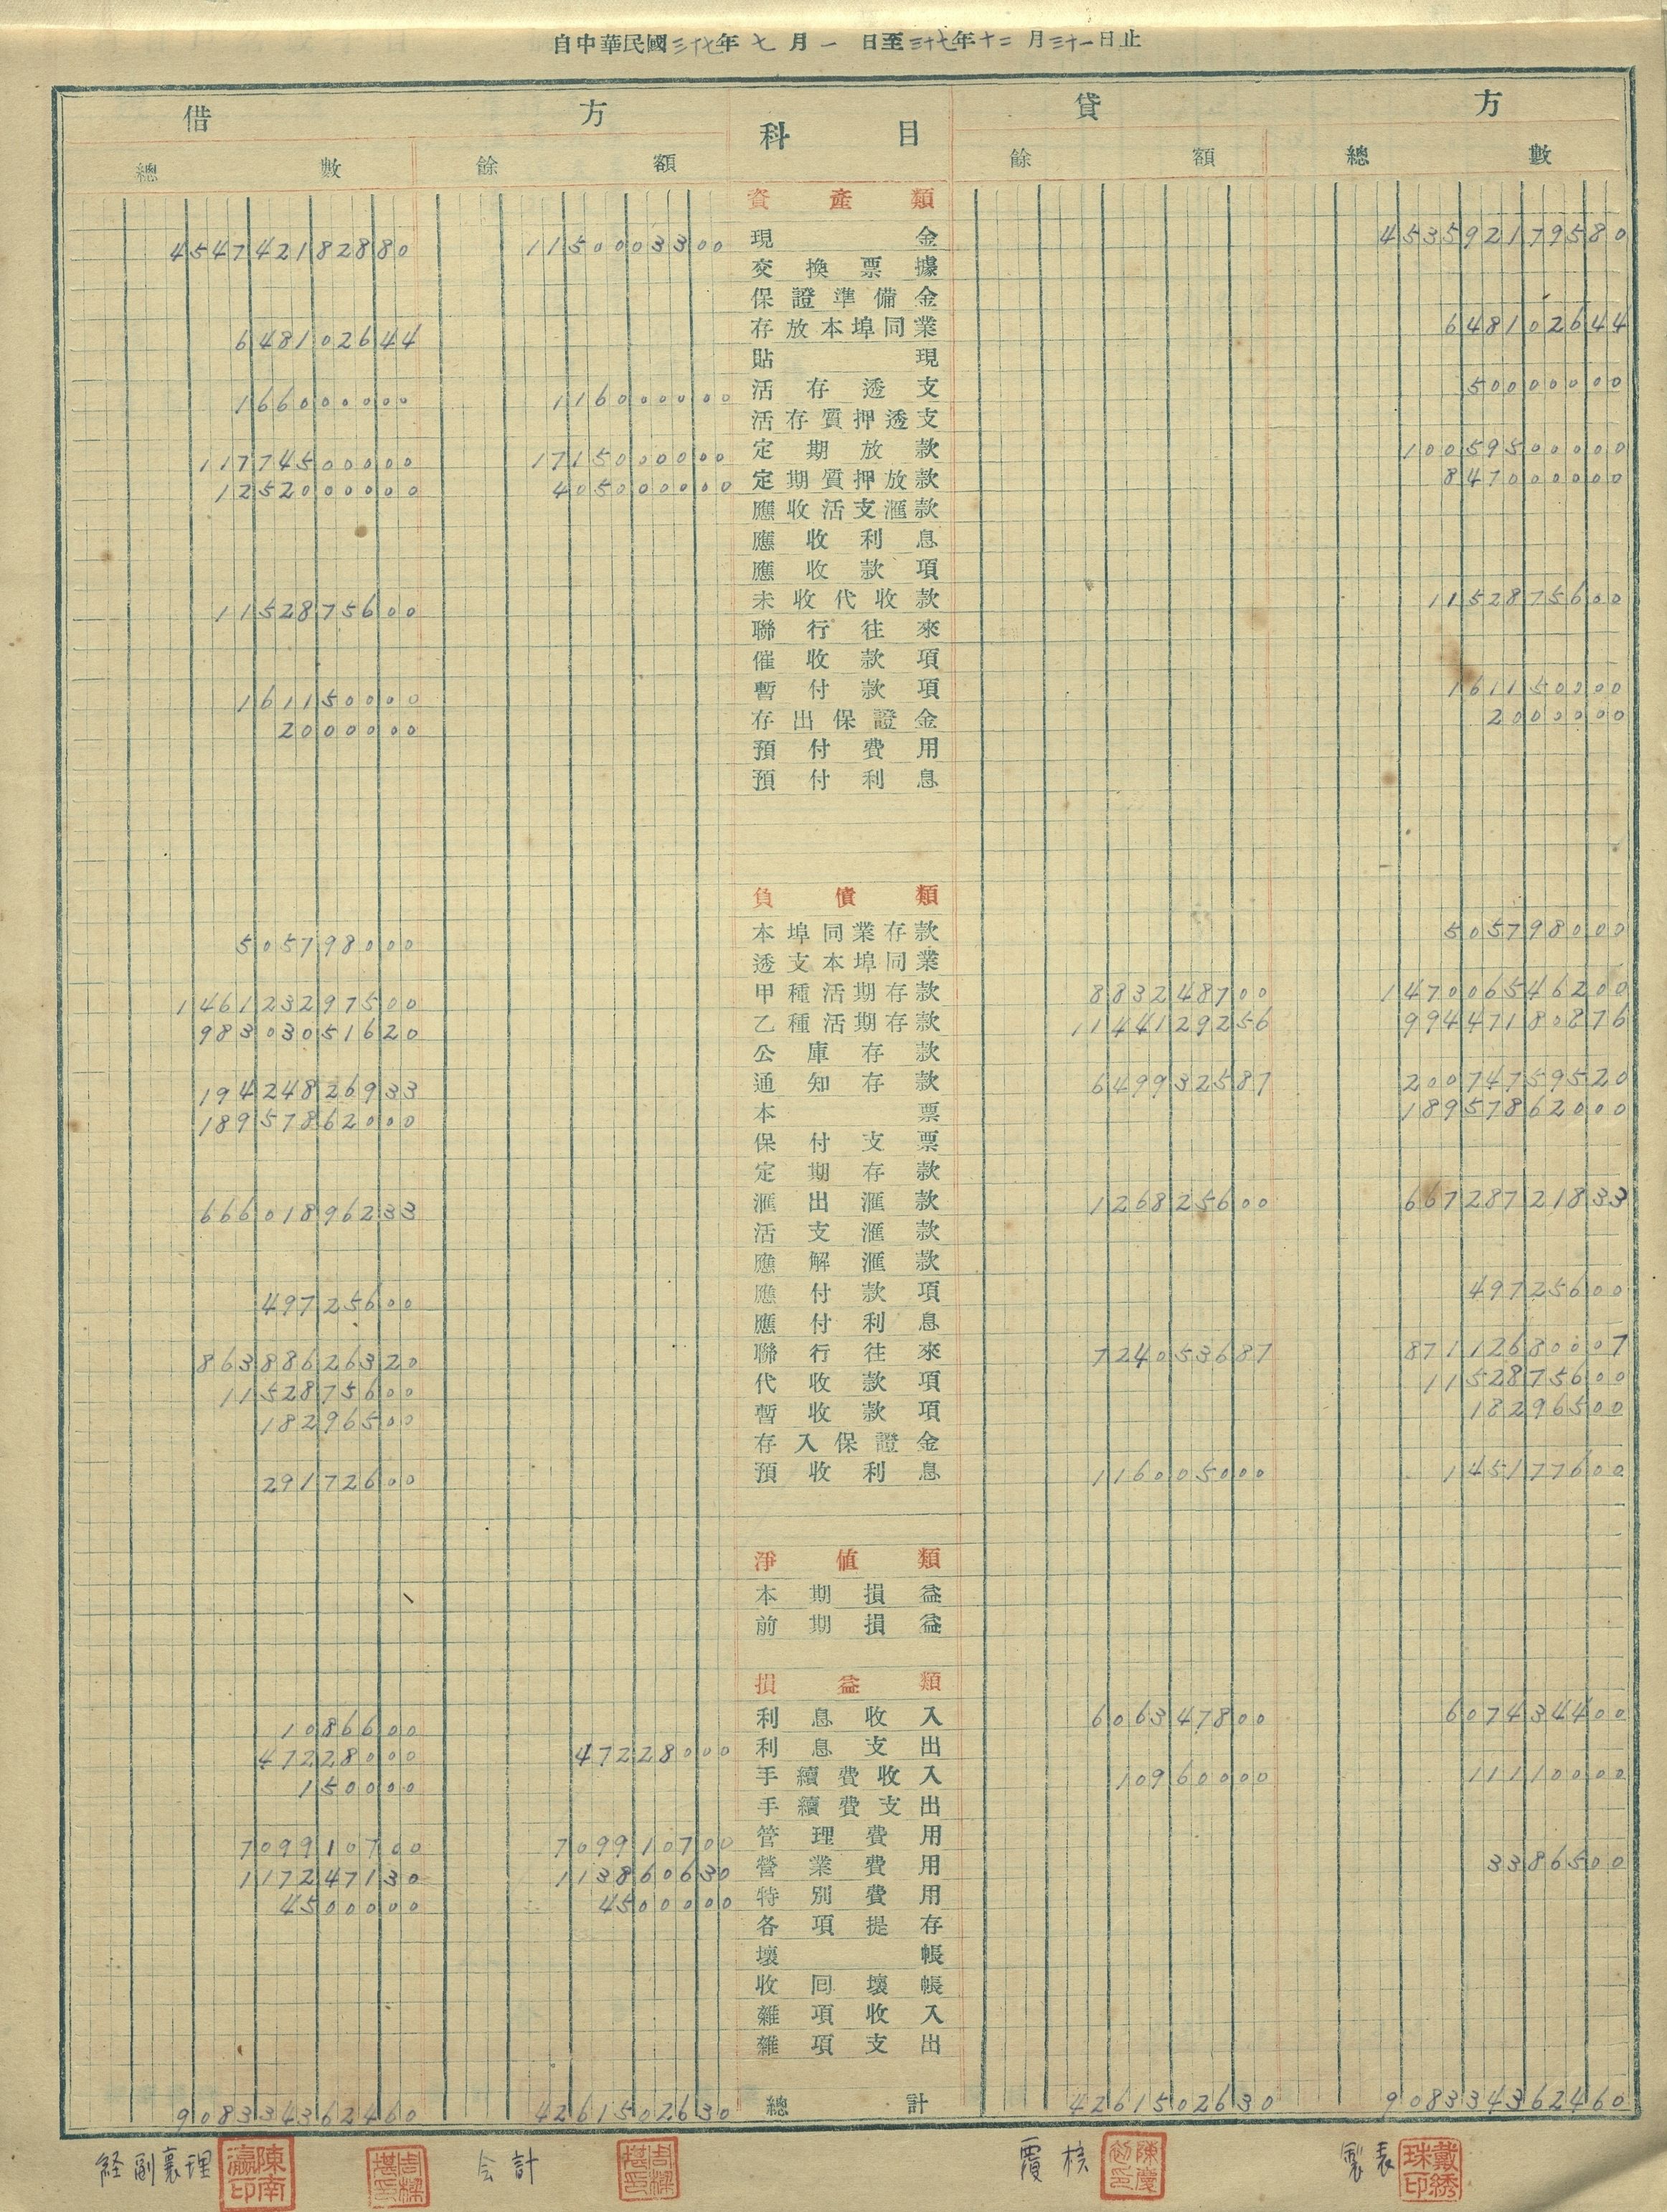 自中華民國三十七年七月一日至三十七年十二月三十一日止
借方 科目 貸方
總數 餘額 餘額 總數
資產類
454742182880 1150003300 現金 453592179580
交換票據
保證準備金
648102644 存放本埠同業 648102644
貼現
166000000 116000000 活存透支 50000000
活存質押透支
11774500000 1715000000 定期放款 10059500000
1252000000 405000000 定期質押放款 847000000
應收活支滙款
應收利息
應收款項
1152875600 未收代收款 1152875600
聯行往來
催收款項
161150000 暫付款項 161150000
2000000 存出保證金 2000000
預付費用
預付利息
負債類
505798000 本埠同業存款 505798000
透支本埠同業
146123297500 甲種活期存款 883248700 147006546200
98303051620 乙種活期存款 1144129256 99447180876
公庫存款
19424826933 通知存款 649932587 20074759520
18957862000 本票 18957862000
保付支票
定期存款
66601896233 滙出滙款 126825600 66728721833
活支滙款
應解滙款
49725600 應付款項 49725600
應付利息
86388626320 聯行往來 724053687 87112680007
1152875600 代收款項 1152875600
18296500 暫收款項 18296500
存入保證金
29172600 預收利息 116005000 145177600
淨值類
本期損益
前期損益
損益類
1086600 利息收入 606347800 607434400
47228000 47228000 利息支出
150000 手續費收入 10960000 11110000
手續費支出
709910700 709910700 管理費用
117247130 113860630 營業費用 3386500
4500000 4500000 特別費用
各項提存
壞帳
收回壞帳
雜項收入
雜項支出
908334362460 4261502630 總計 4261502630 908334362460
経副襄理 陳南瀛印 周樑堪印 会計 周樑堪印 覆核 製表 戴綉珠印